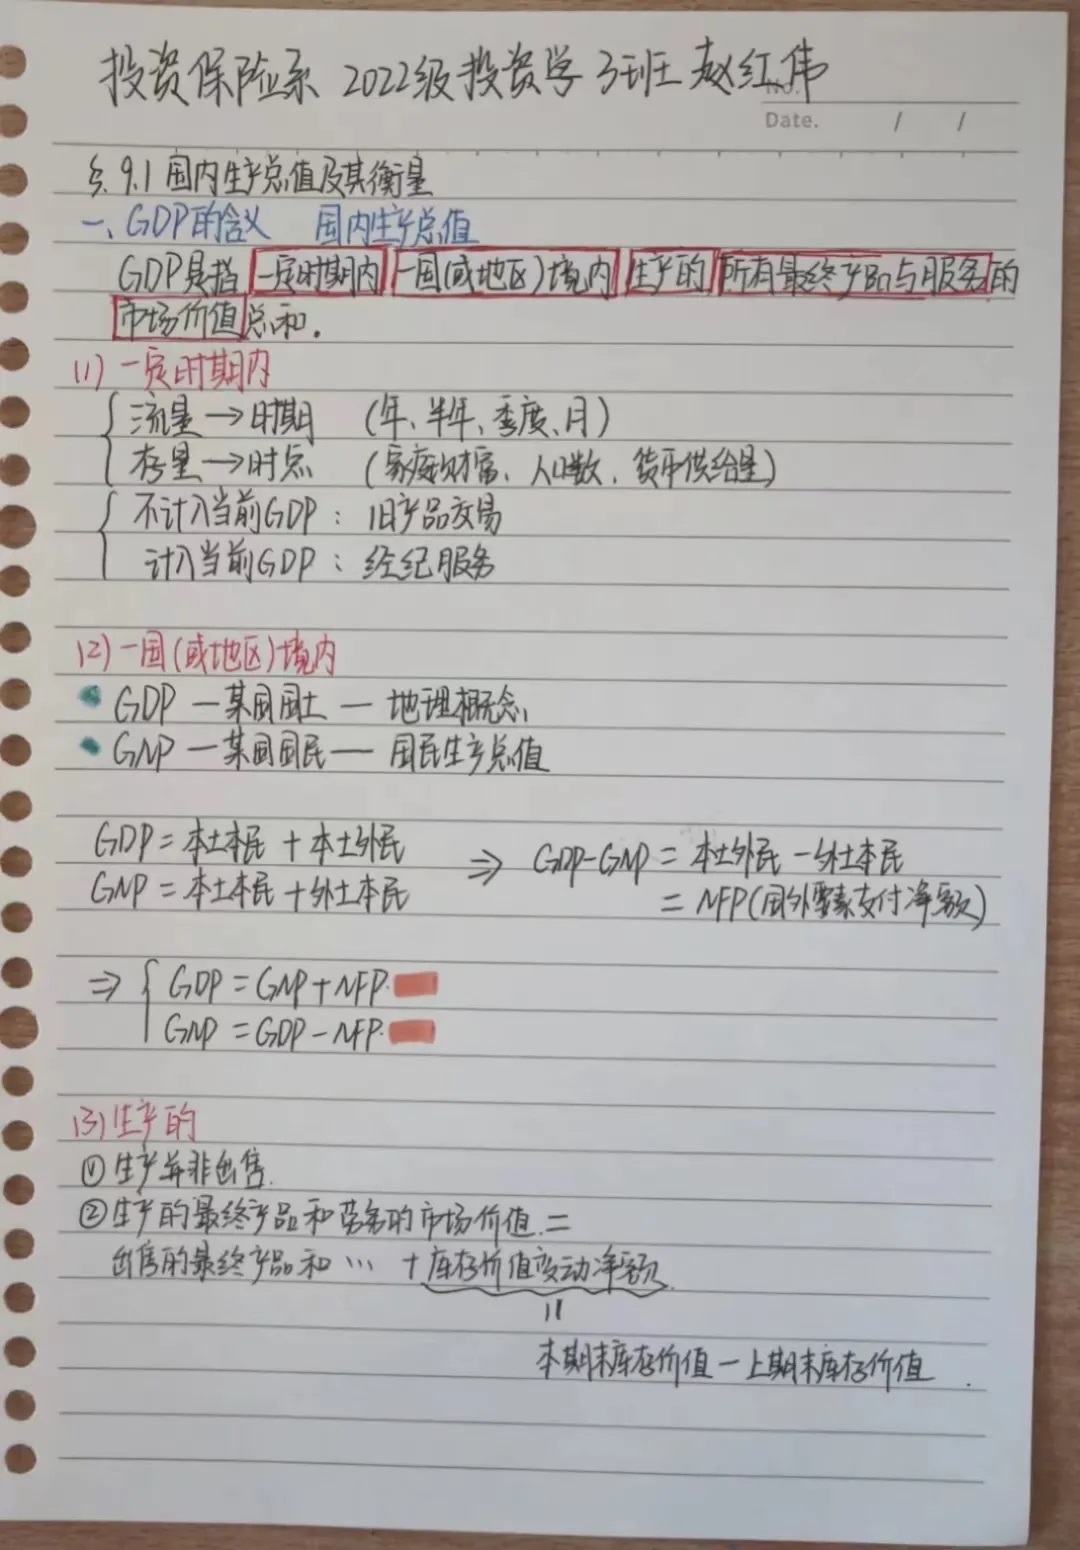 投资保险系 2022级投资学3班 赵红伟
No.
Date. / /
§.9.1 国内生产总值及其衡量
一、GDP的含义 国内生产总值
GDP是指一定时期内一国(或地区)境内生产的所有最终产品与服务的
市场价值总和.
(1) 一定时期内
流量→时期 (年、半年、季度、月)
存量→时点 (家庭财富、人口数、货币供给量)
不计入当前GDP: 旧产品交易
计入当前GDP: 经纪服务
(2) 一国(或地区)境内
GDP — 某国国土 — 地理概念
GNP — 某国国民 — 国民生产总值
GDP = 本土本民 + 本土外民
GNP = 本土本民 + 外土本民
⇒ GDP-GNP = 本土外民 - 外土本民
= NFP(国外要素支付净额)
⇒ GDP = GNP + NFP.
GNP = GDP - NFP.
(3) 生产的
① 生产并非出售.
② 生产的最终产品和劳务的市场价值 =
出售的最终产品和 … + 库存价值变动净额
=
本期末库存价值 - 上期末库存价值.